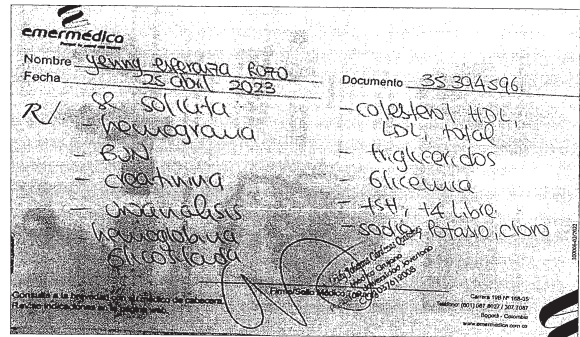 emermédica
Nombre yenny esperanza Rozo
Fecha 25 abril 2023
Documento 35 394596.
R/ se solicita
- hemograma
- BUN
- creatinina
- uroanalisis
- hemoglobina
Glicosilada
- colesterol HDL,
LDL, total
- trigliceridos
- Glicemia
- TSH, t4 Libre
- sodio, Potasio, cloro
Consulte a la brevedad con su médico de cabecera.
Revise indicaciones en la página web.
Firma/Sello Médico
Carrera 19B Nº 168-35
Bogotá - Colombia
www.emermedica.com.co